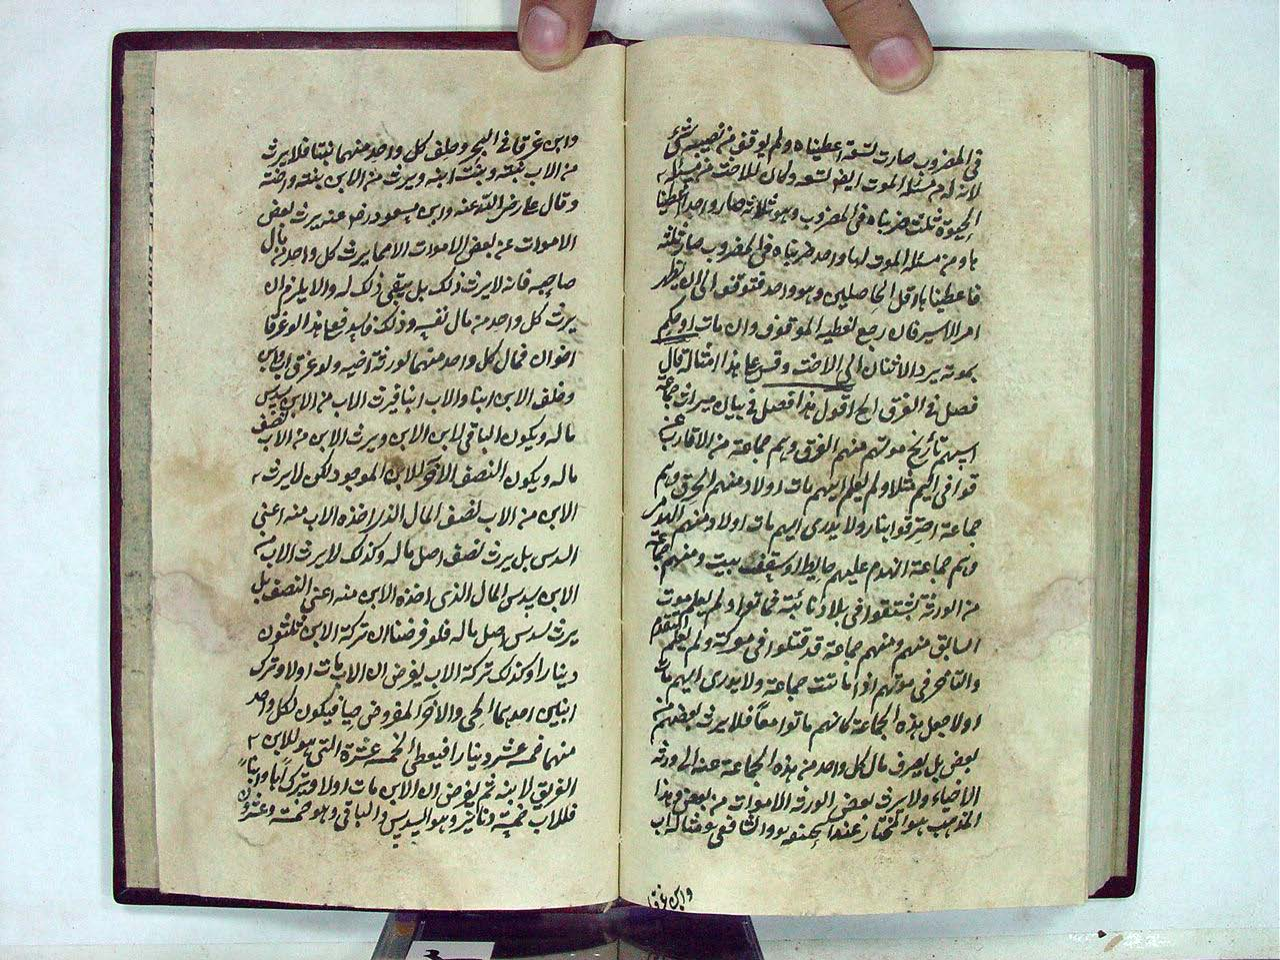 في المضروب صارت تسعة اعطيناه ولم يوقف من نصيبه شئ
لانه له من مسئلة الموت ايضا تسعة وكان للاخت من مسئلة
الحيوة ثلث ضربناه في المضروب وهو ثلاثة صار واحدا اعطينا
ها ومن مسئلة الموت لها واحد ضربناه في المضروب صار ثلثة
فاعطيناها اقل الحاصلين وهو واحد فتوقف الى ان يظهر
امر الاسير فان رجع نعطيه الموقوف وان مات او حكم
بموته يرد الاثنان الى الاخت وقس على هذا امثاله قال
فصل في الغرقى الخ اقول هذا فصل في بيان ميراث جماعة
اسهم تأريخ موتهم منهم الغرقى وهم جماعة من الاقارب غر
قوا في اليم مثلا ولم يعلم ايهم مات اولا ومنهم الحرقى وهم
جماعة احترقوا بنار ولا يدرى ايهم مات اولا ومنهم الهدمى
وهم جماعة انهدم عليهم حايط او سقف بيت ومنهم جماعة
من الورثة تشتتوا في بلاد نائية فماتوا ولم يعلم موت
السابق منهم ومنهم جماعة قد قتلوا في معركة ولم يعلم المتقدم
والتأخر في موتهم اذا ماتت جماعة ولا يدرى ايهم مات
اولا جعل هذه الجماعة كانهم ماتوا معاً فلا يرث بعضهم من
بعض بل يصرف مال كل واحد من هذه الجماعة عنه الى ورثه
الاحياء ولا يرث بعض الورثة الاموات من بعض وهذا
المذهب هو المختار عند ابي حنيفة والشافعي مثاله اب
وابن غرقا
وابن غرقا في البحر وخلف كل واحد منهما بنتا فلا يرث
من الاب بنته وبنت ابنه ويرث من الابن بنته واخته
وقال علي رضي الله عنه وابن مسعود رضي عنه يرث بعض
الاموات عن بعض الاموات الا مما يرث كل واحد من مال
صاحبه فانه لا يرث ذلك بل يبقى ذلك له والا يلزم ان
يرث كل واحد من مال نفسه وذلك فاسد فعلى هذا لو غرقا
اخوان فمال كل واحد منهما لورثة اخيه ولو غرق اب وابن
وخلف الابن ابنا والاب ابنا فيرث الاب من الابن سدس
ماله ويكون الباقي لابن الابن ويرث الابن من الاب نصف
ماله ويكون النصف الاخر للابن الموجود لكن لا يرث
الابن من الاب نصف المال الذي اخذه الاب منه اعني
السدس بل يرث نصف اصل ماله وكذلك لا يرث الاب من
الابن سدس المال الذي اخذه الابن منه اعني النصف بل
يرث سدس اصل ماله فلو فرضنا ان تركة الابن ثلثون
دينارا وكذلك تركة الاب يفرض ان الاب مات اولا وترك
ابنين احدهما الحي والاخر المفروض حيا فيكون لكل واحد
منهما خمسة عشر دينارا فيعطى الخمسة عشرة التي هو للابن
الغريق لابنه ثم يفرض ان الابن مات اولا وترك ابا وابناً
فللاب خمسة دنانير وهو السدس والباقي وهو خمسة وعشرون